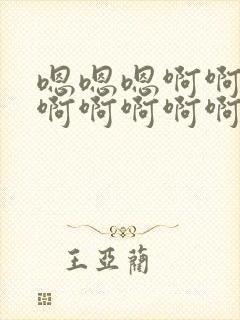 嗯嗯嗯啊啊
啊啊啊啊啊
王亚蔺